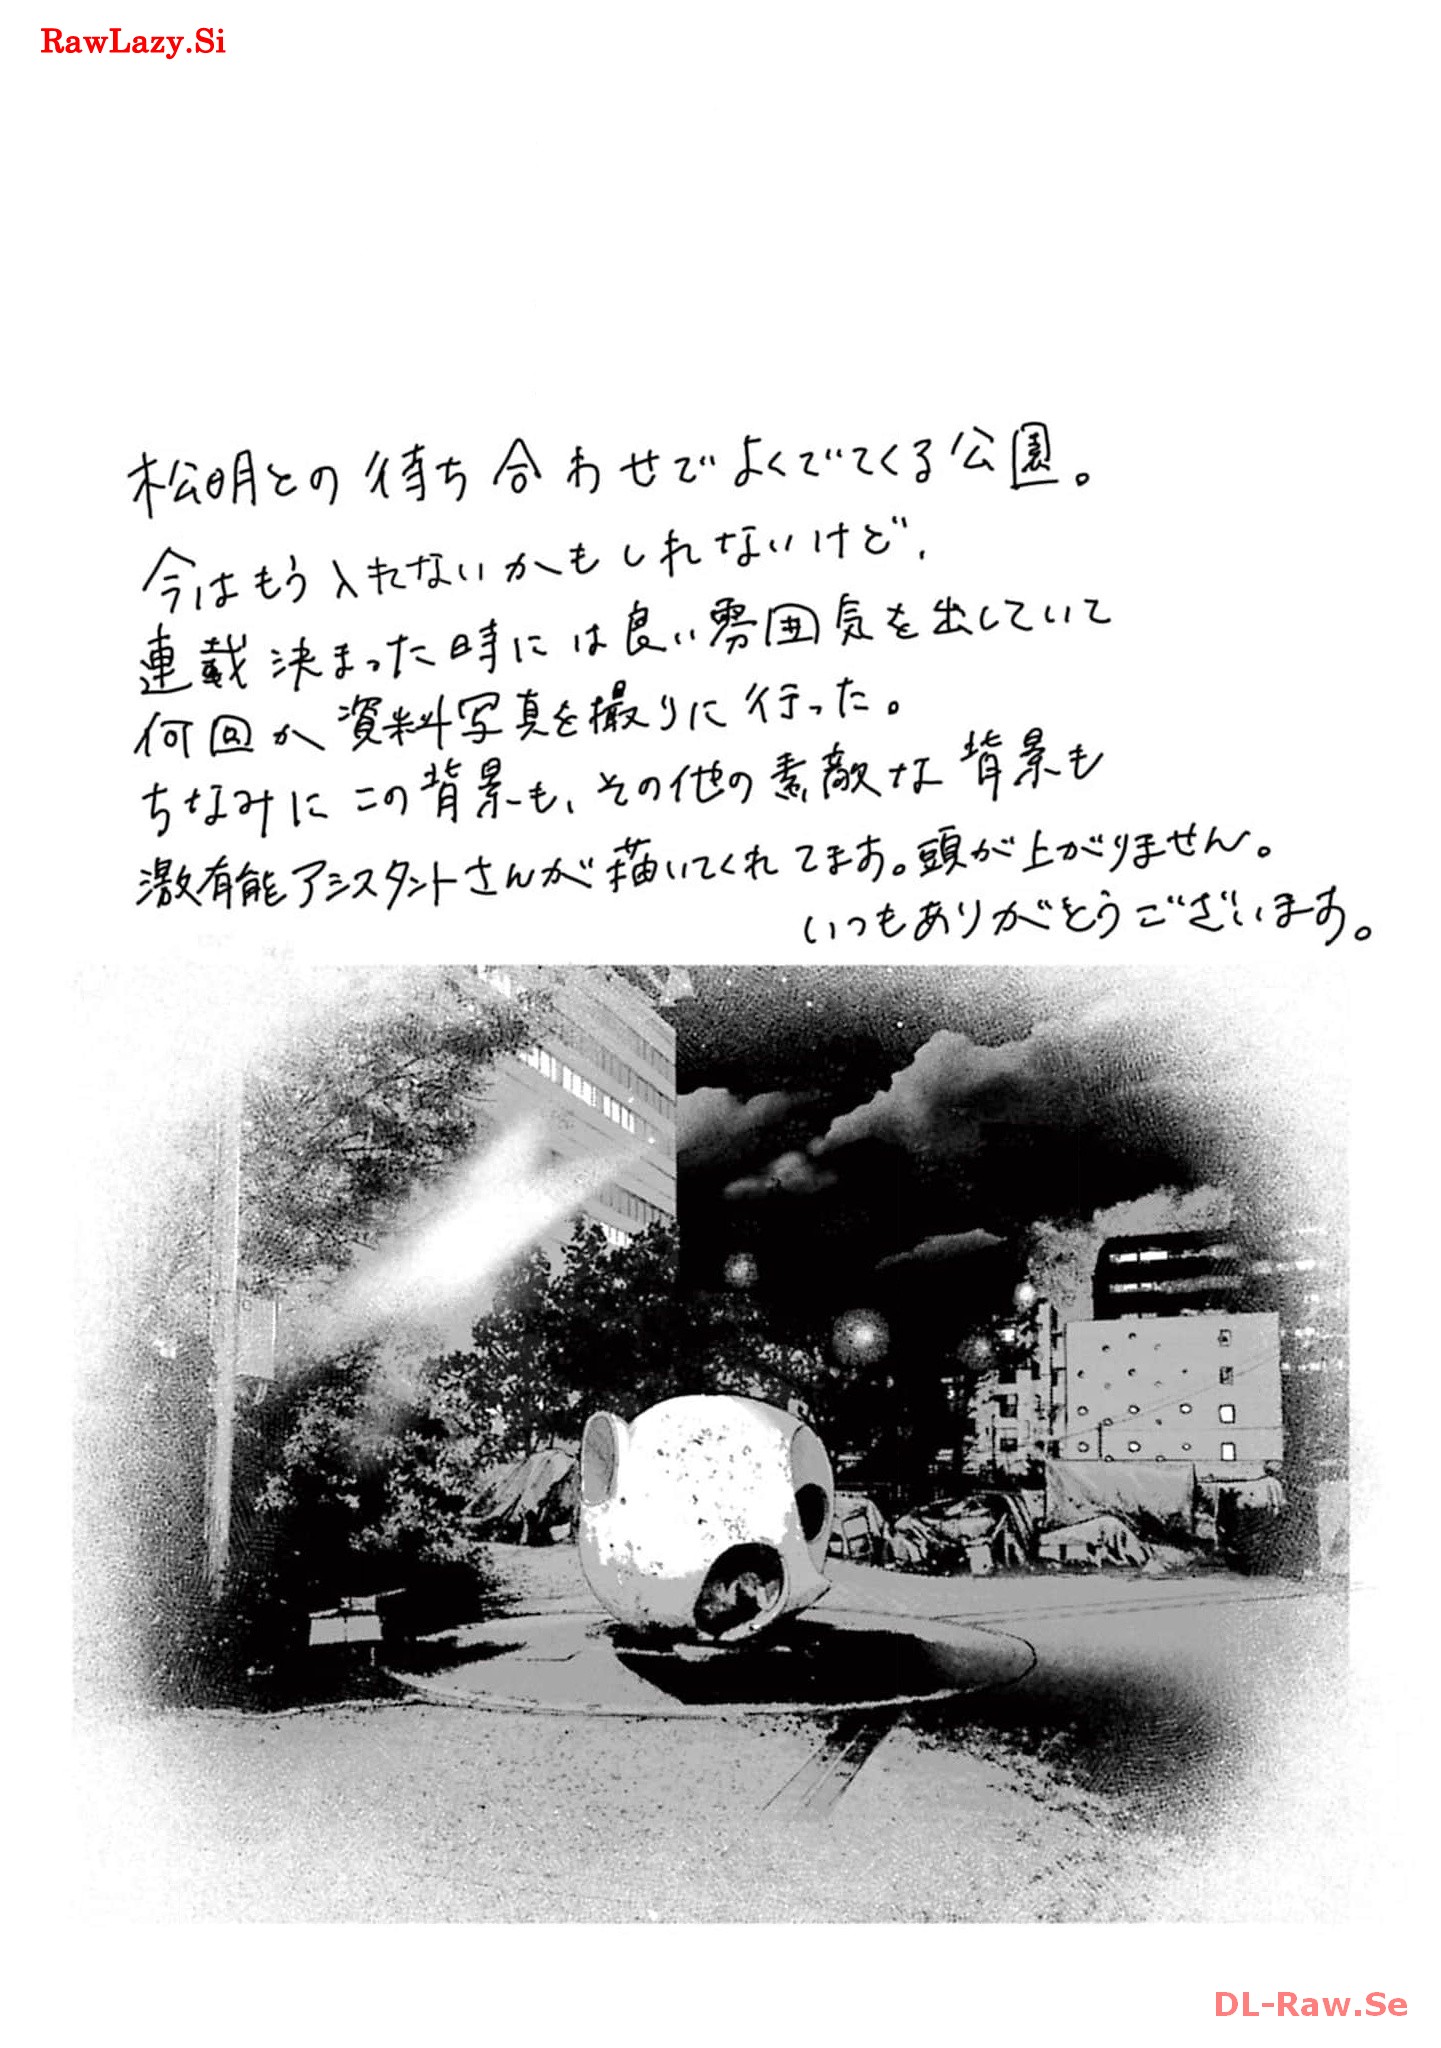 RawLazy.Si
松明との待ち合わせでよくでてくる公園。
今はもう入れないかもしれないけど、
連載決まった時には良い雰囲気を出していて
何回か資料写真を撮りに行った。
ちなみにこの背景も、その他の素敵な背景も
激有能アシスタントさんが描いてくれてます。頭が上がりません。
いつもありがとうございます。
DL-Raw.Se